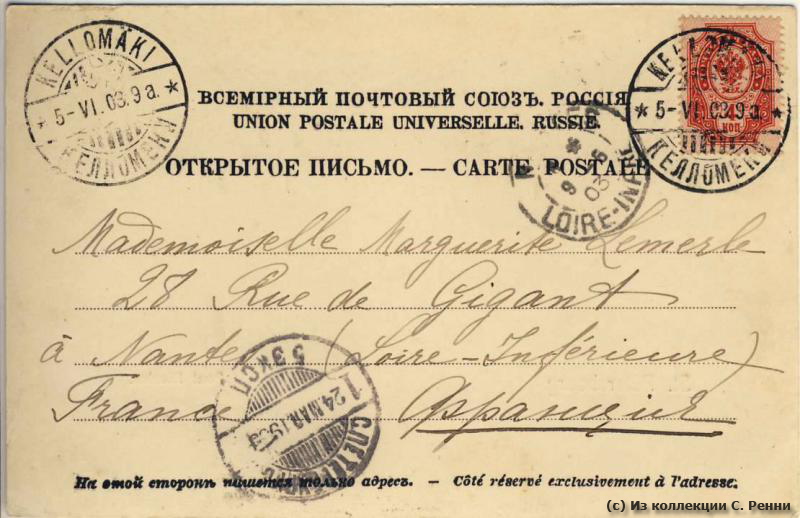 KELLOMÄKI
5-VI.03.9a.
КЕЛЛОМЕКИ
KELLOM
5-VI.03.9a.
КЕЛЛОМЕКИ
4
КОП
ВСЕМІРНЫЙ ПОЧТОВЫЙ СОЮЗЪ. РОССІЯ
UNION POSTALE UNIVERSELLE. RUSSIE.
ОТКРЫТОЕ ПИСЬМО. — CARTE POSTALE
03
LOIRE-INF
Mademoiselle Marguerite Lemerle
28 Rue de Gigant
à Nantes (Loire-Inférieure)
France Франция
5 ЭКСП
1
24 MAR 19
С.ПЕТЕР
На этой сторонѣ пишется только адресъ. — Côté réservé exclusivement à l'adresse.
(c) Из коллекции С. Ренни